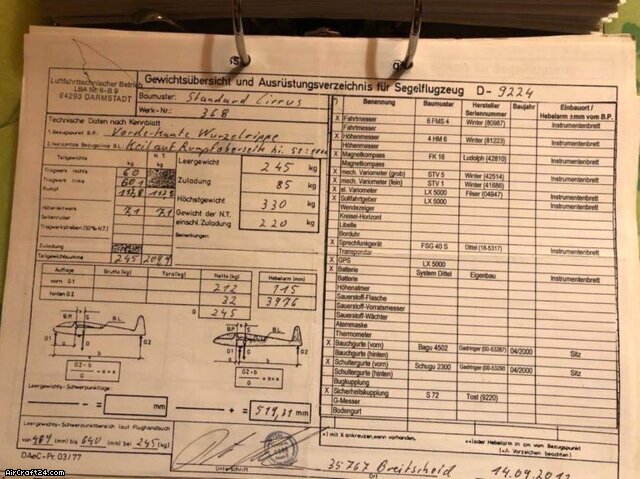 Luftfahrttechnischer Betrieb
LBA Nr. II-B 9
64293 DARMSTADT
Gewichtsübersicht und Ausrüstungsverzeichnis für Segelflugzeug D- 9224
Baumuster: Standard Cirrus
Werk-Nr.: 368
Technische Daten nach Kennblatt
1. Bezugspunkt B.P.: Vorderkante Wurzelrippe
2. horizontale Bezugslinie B.L.: Keil auf Rumpfoberseite
Teilgewichte N.T.
Tragwerk rechts 60
Tragwerk links 60,1
Rumpf
Höhenleitwerk 7,1 7,1
Seitenruder
Tragwerkstreben (50% N.T.)
Zuladung
Teilgewichtssumme 245
Leergewicht 245 kg
Zuladung 85 kg
Höchstgewicht 330 kg
Gewicht der N.T. einschl. Zuladung 220 kg
Bemerkungen:
Auflage Brutto (kg) Tara (kg) Netto (kg) Hebelarm (mm)
vorn G1 212 115
hinten G2 32 3976
245
B.P. S B.L.
G1 G2
Leergewichts-Schwerpunktlage:
= mm
+ = 519,31 mm
Leergewichts-Schwerpunktbereich laut Flughandbuch
(mm) bis 640 (mm) bei 245 (kg)
DAeC-Pr. 03/77
Unterschrift
35767 Breitscheid
Ort
Benennung Baumuster Hersteller Seriennummer Baujahr Einbauort / Hebelarm ±mm vom B.P.
X Fahrtmesser 6 FMS 4 Winter (80987) Instrumentenbrett
Fahrtmesser
X Höhenmesser 4 HM 6 Winter (81223) Instrumentenbrett
Höhenmesser
X Magnetkompass FK 16 Ludolph (42810) Instrumentenbrett
X mech. Variometer (grob) STV 5 Winter (42514) Instrumentenbrett
X mech. Variometer (fein) STV 1 Winter (41686) Instrumentenbrett
X el. Variometer LX 5000 Filser (04947)
X Sollfahrtgeber LX 5000 Instrumentenbrett
Wendezeiger
Kreisel-Horizont
Libelle
Borduhr
X Sprechfunkgerät FSG 40 S Dittel (16-5317) Instrumentenbrett
Transponder
X GPS LX 5000
X Batterie System Dittel Eigenbau Instrumentenbrett
Batterie
Höhenatmer
Sauerstoff-Flasche
Sauerstoff-Vorratsmesser
Sauerstoff-Wächter
Atemmaske
Thermometer
X Bauchgurte (vorn) Bagu 4502 Gadringer (00-53287) 04/2000 Sitz
Bauchgurte (hinten)
X Schultergurte (vorn) Schugu 2300 04/2000 Sitz
Schultergurte (hinten)
Bugkupplung
X Sicherheitskupplung S 72 Tost (9220)
G-Messer
Bodengurt
*) mit X ankreuzen, wenn vorhanden.
**) oder Hebelarm in cm vom Bezugspunkt
(+/- Vorzeichen beachten)
AirCraft24.com